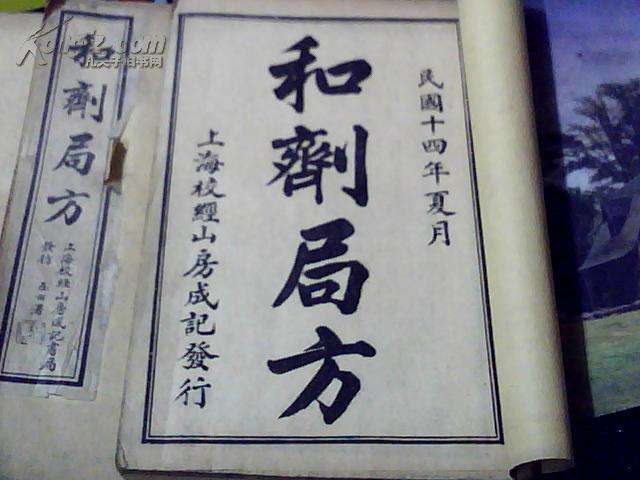 民國十四年夏月
和劑局方
上海校經山房成記發行
和劑局方
上海校經山房成記書局
發行
孔夫子旧书网